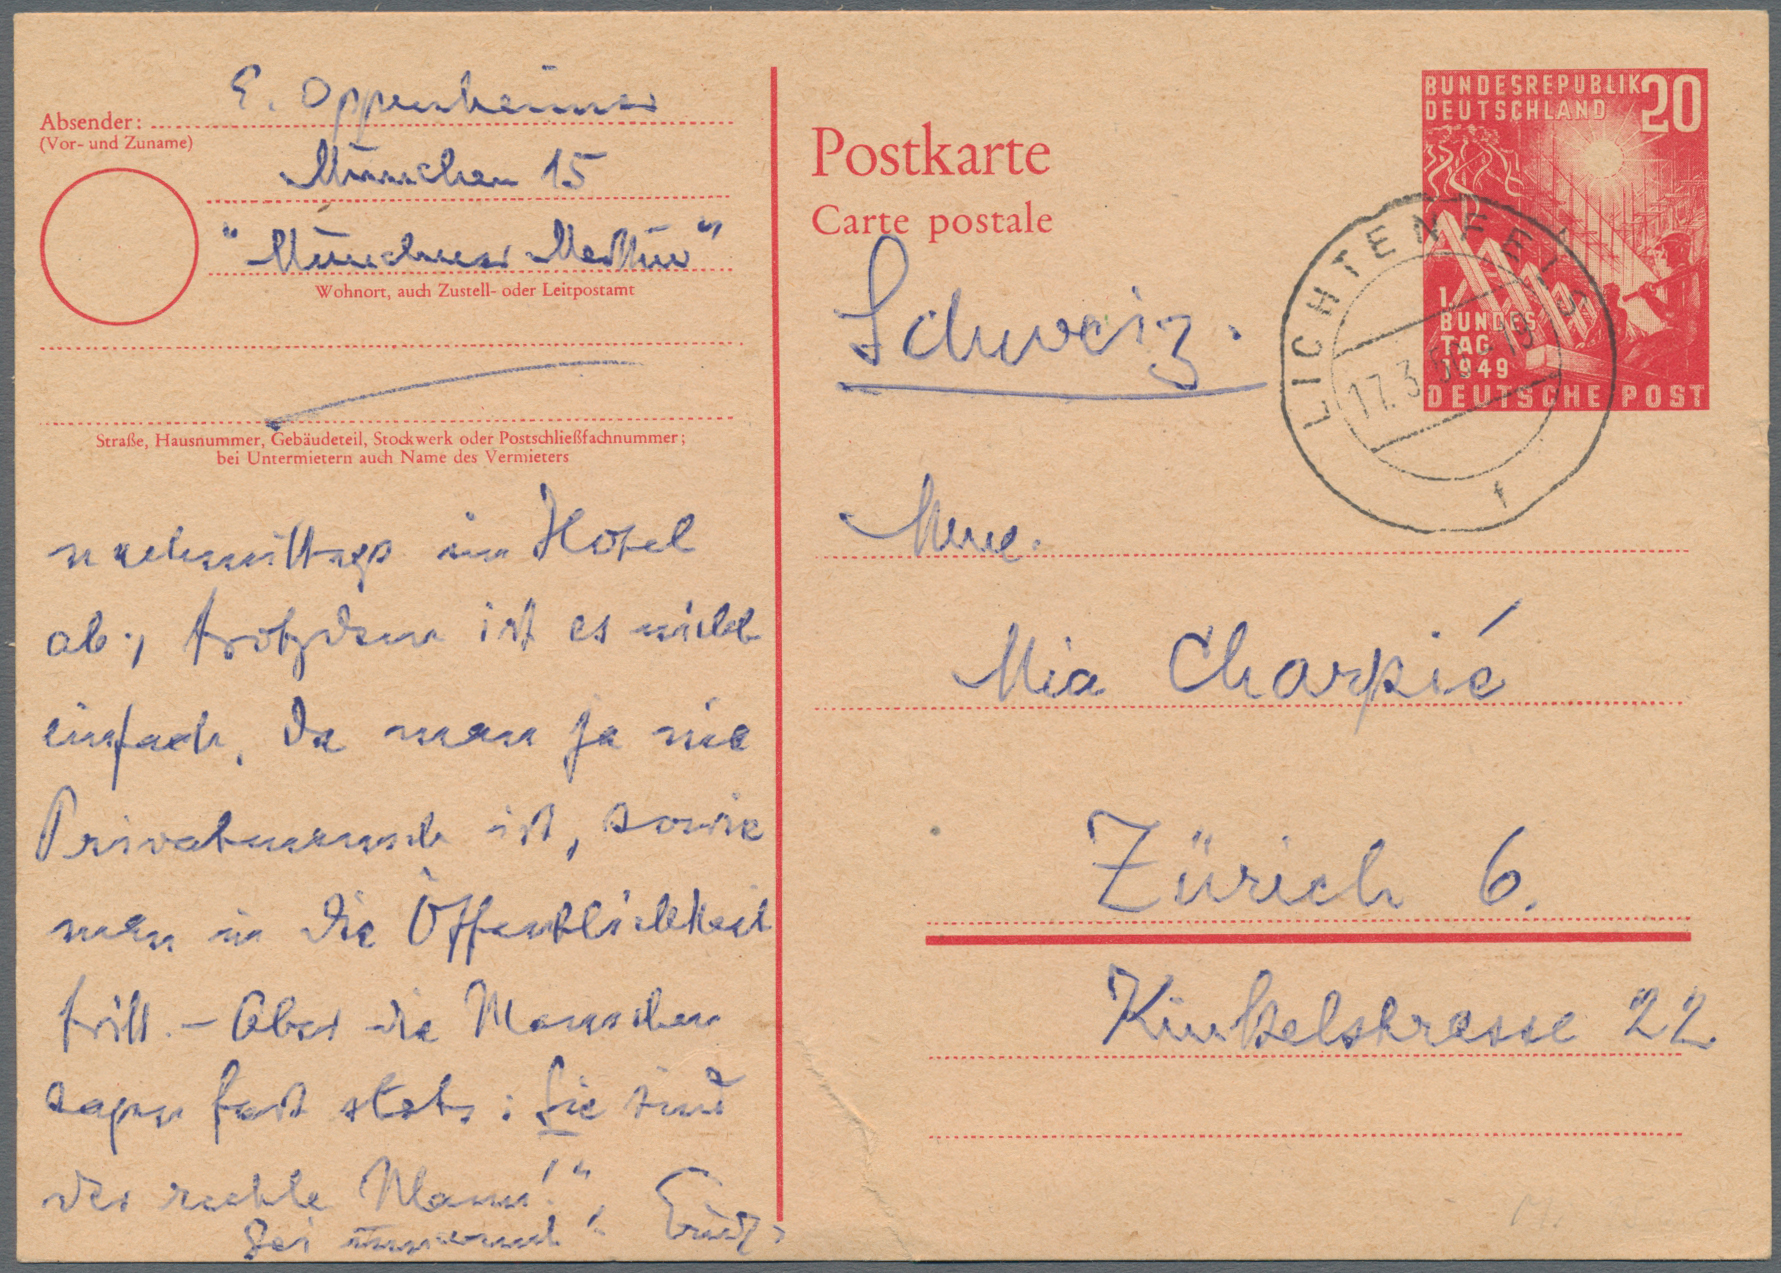 Absender: E. Oppenheimer
(Vor- und Zuname)
München 15
"Münchner Merkur"
Wohnort, auch Zustell- oder Leitpostamt
Straße, Hausnummer, Gebäudeteil, Stockwerk oder Postschließfachnummer;
bei Untermietern auch Name des Vermieters
nachmittags im Hotel
ab; trotzdem ist es nicht
einfach, da man ja nie
Privatmensch ist, sowie
man in die Öffentlichkeit
tritt. – Aber die Menschen
sagen fast stets: Sie sind
der rechte Mann!",
Sei umarmt!
Postkarte
Carte postale
Schweiz.
Mme.
Mia Charpié
Zürich 6.
Kinkelstrasse 22
BUNDESREPUBLIK 20
DEUTSCHLAND
1.
BUNDES
TAG
1949
DEUTSCHE POST
LICHTENFELS
17.3.50
f